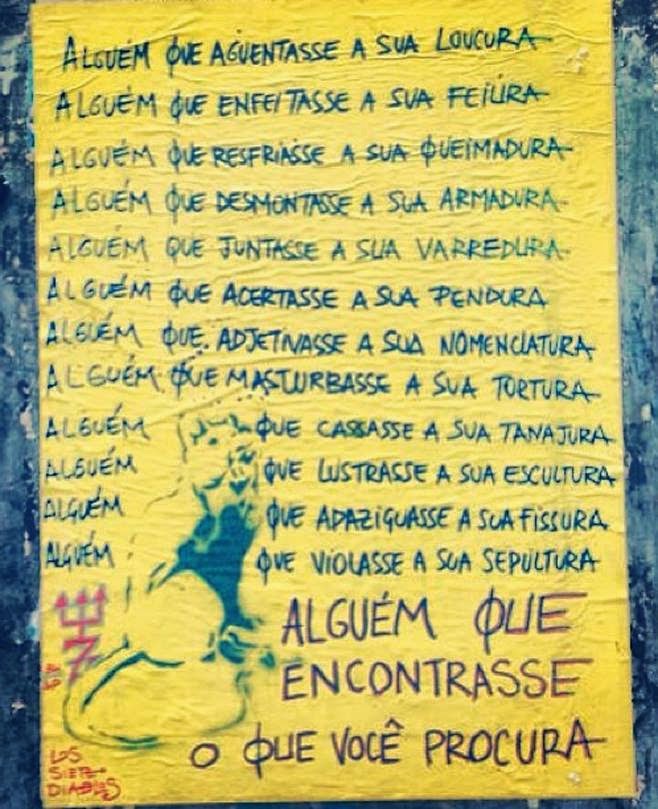 ALGUÉM QUE AGUENTASSE A SUA LOUCURA
ALGUÉM QUE ENFEITASSE A SUA FEIÚRA
ALGUÉM QUE RESFRIASSE A SUA QUEIMADURA
ALGUÉM QUE DESMONTASSE A SUA ARMADURA
ALGUÉM QUE JUNTASSE A SUA VARREDURA
ALGUÉM QUE ACERTASSE A SUA PENDURA
ALGUÉM QUE ADJETIVASSE A SUA NOMENCLATURA
ALGUÉM QUE MASTURBASSE A SUA TORTURA
ALGUÉM QUE CASSASSE A SUA TANAJURA
ALGUÉM QUE LUSTRASSE A SUA ESCULTURA
ALGUÉM QUE APAZIGUASSE A SUA FISSURA
ALGUÉM QUE VIOLASSE A SUA SEPULTURA
ALGUÉM QUE
ENCONTRASSE
O QUE VOCÊ PROCURA
7
LOS
SIETE
DIABLOS